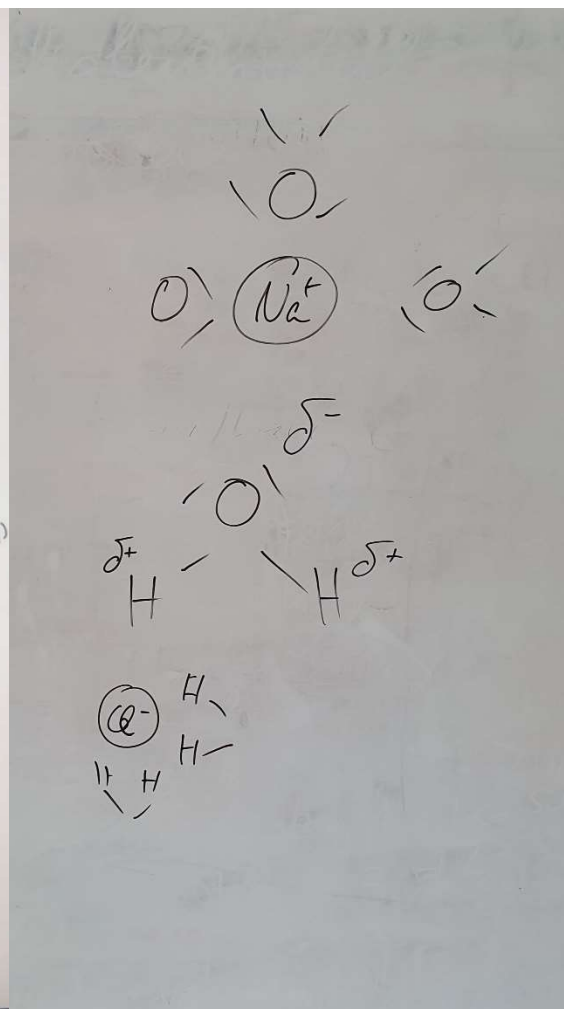 O
O Na⁺ O
δ⁻
O
δ+ δ+
H H
Cl⁻ H
H
H H